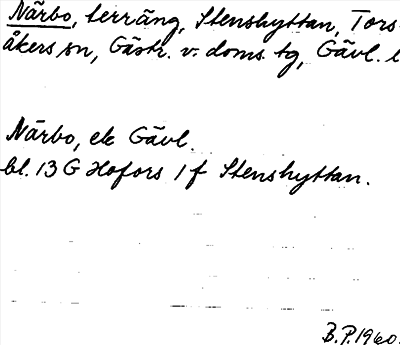 Närbo, terräng, Stenshyttan, Tors-
åkers sn, Gästr. v. doms. tg, Gävl. l
Närbo, ek Gävl.
bl. 13 G Hofors 1 f Stenshyttan.
B.P. 1960.